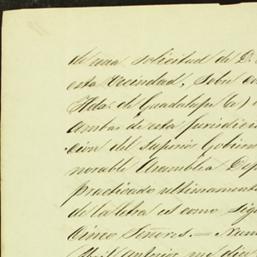 de una solicitud de D.
esta Vecindad, sobre
Hda. de Guadalupe (a)
ambas de esta jurisdicci
cion del Supremo Gobier
norable Asamblea Dep
practicado ultimament
de la letra es como sigu
Cinco Senores. = 
Antonio me dice